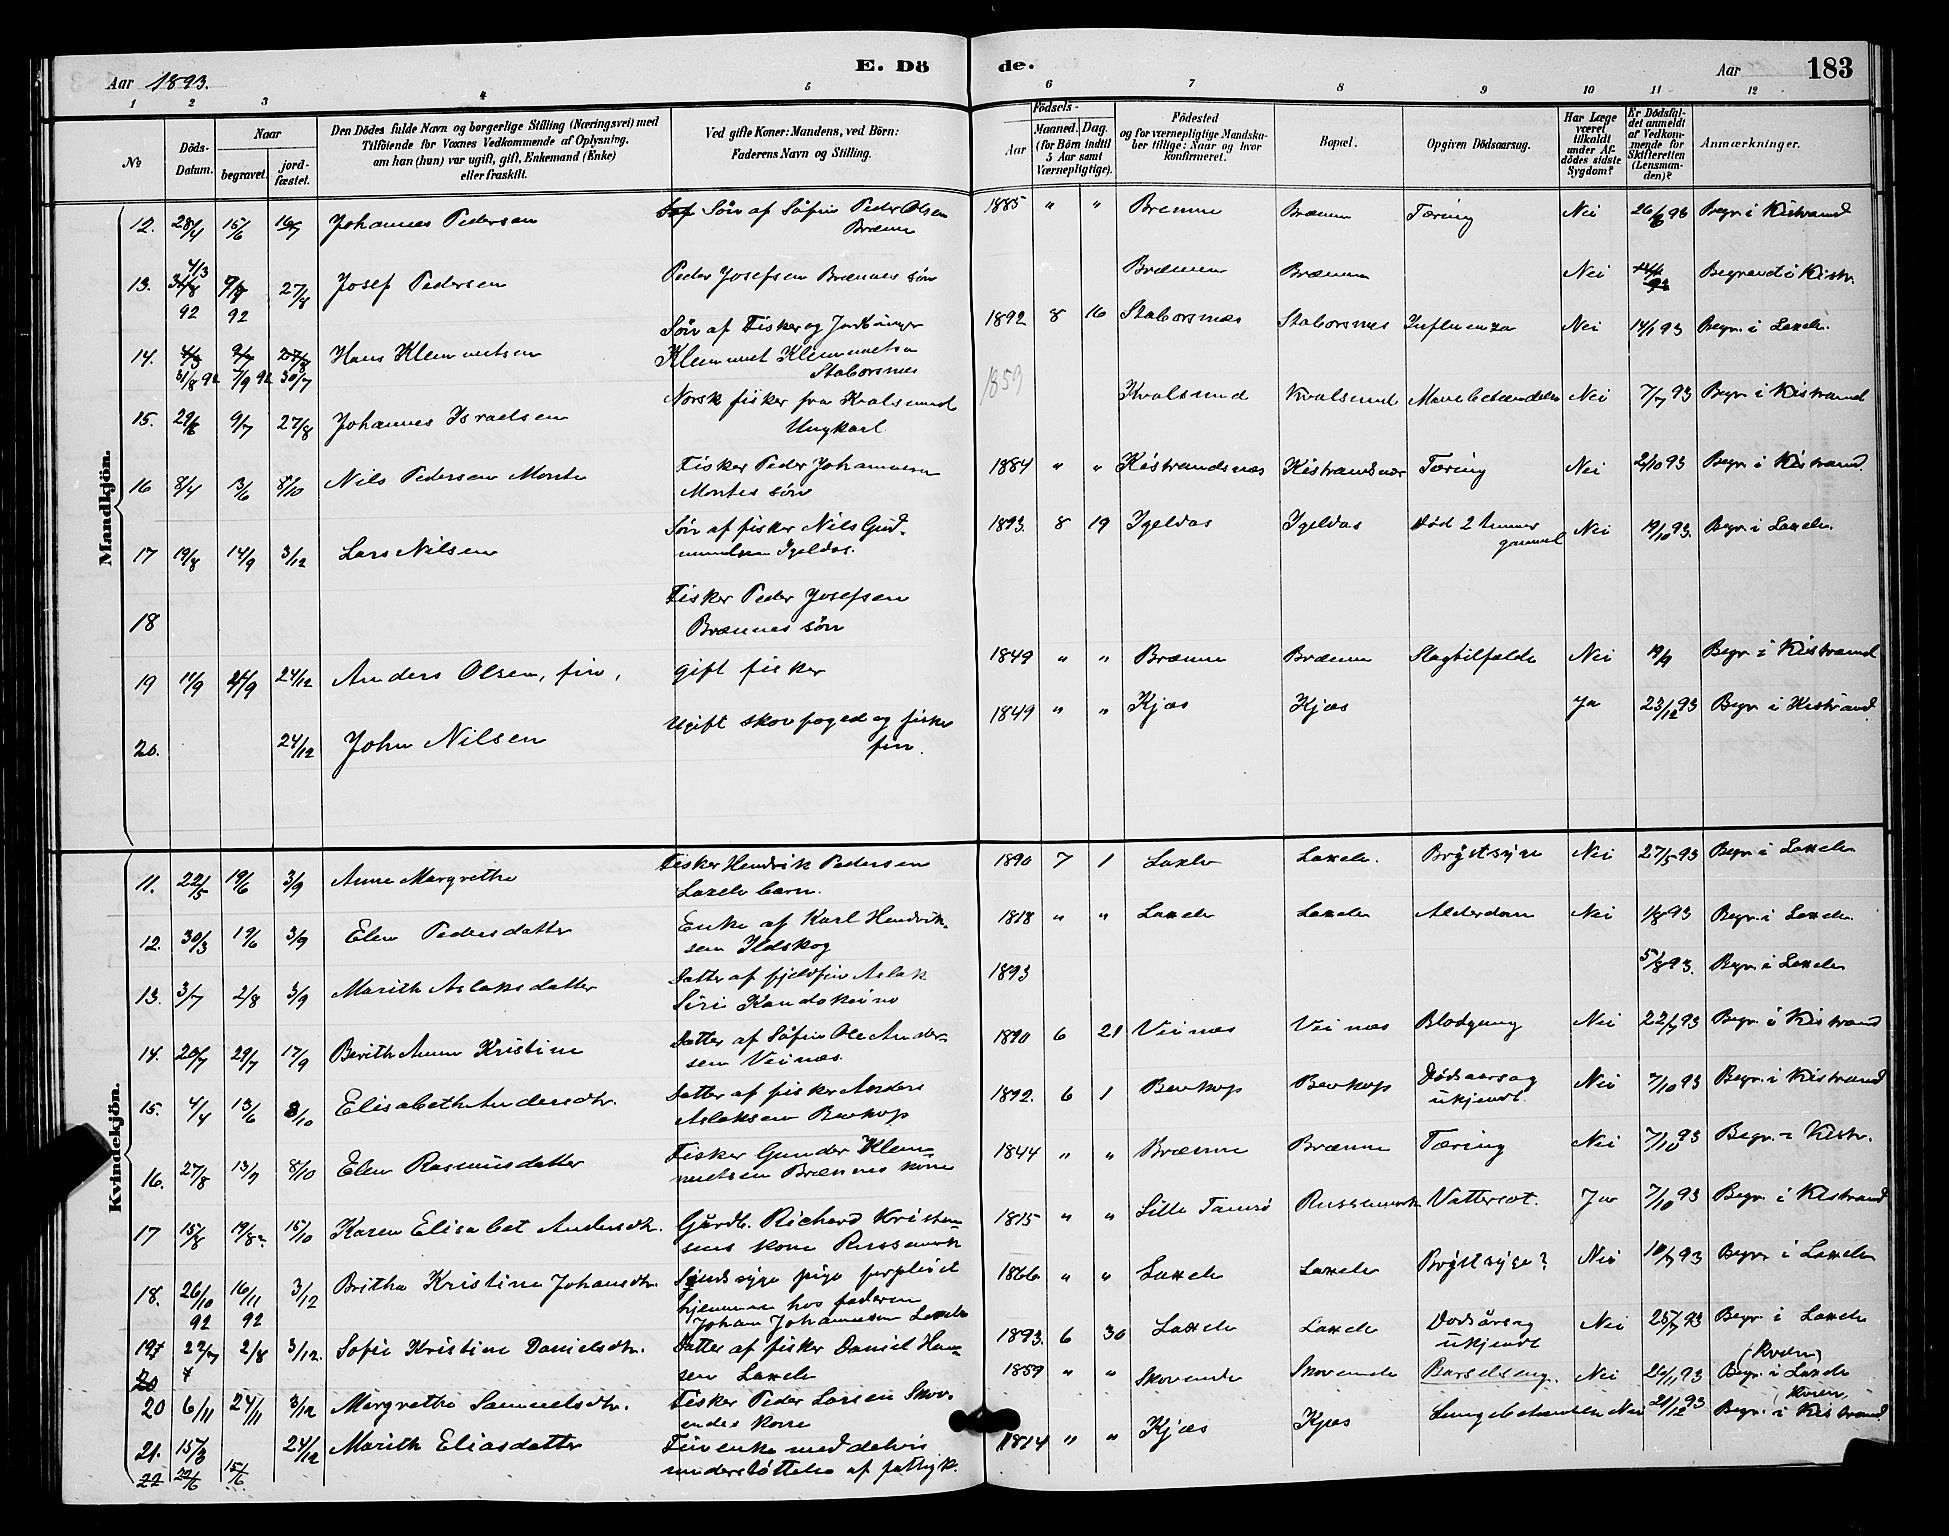 Aar 1893.
E. Dö
de.
Aar
183
1 2 3 4 5 6 7 8 9 10 11 12
№
Döds-Datum.
Naar
begravet.
jord-fæstet.
Den Dödes fulde Navn og borgerlige Stilling (Næringsvei) med
Tilföiende for Voxnes Vedkommende af Oplysning,
om han (hun) var ugift, gift, Enkemand (Enke)
eller fraskilt.
Ved gifte Koner: Mandens, ved Börn:
Faderens Navn og Stilling.
Födsels-
Aar
Maaned. Dag.
(for Börn indtil
5 Aar samt
Værnepligtige).
Födested
og for værnepligtige Mandska-
ber tillige: Naar og hvor
konfirmeret.
Bopæl.
Opgiven Dödsaarsag.
Har Læge
været
tilkaldt
under Af-
dödes sidste
Sygdom?
Er Dödsfal-
det anmeldt
af Vedkom-
mende for
Skifteretten
(Lensman-
den)?
Anmærkninger.
Mandkjön.
12. 28/4 15/6 16/7 Johannes Pedersen Sön af Söfin Peder Olsen Brænne 1885 " " Brenne Brænne Tæring Nei 26/6 93 Begr. i Kistrand
13. 4/3 7/9 92 27/8 Josef Pedersen Peder Josefsen Brænnes sön Brænnen Brænnen Nei Begraved i Kistr.
14. 31/8 92 7/9 92 30/7 Hans Klemmetsen Sön af Fisker og Jordbruger
Klemmet Klemmetsen
Staborsnes 1892 8 16 Staborsnæs Staborsnes Influenza Nei 14/1 93 Begr. i Laxelv.
15. 29/6 9/7 27/8 Johannes Israelsen Norsk fisker fra Kvalsund
Ungkarl 1859 Kvalsund Kvalsund Mavebetændelse Nei 7/7 93 Begr. i Kistrand
16 8/4 13/6 8/10 Nils Pedersen Monte Fisker Peder Johannesen
Montes sön 1884 " " Kistrandsnæs Kistrandsnæs Tæring Nei 2/10 93 Begr. i Kistrand.
17 19/8 14/9 3/12 Lars Nilsen Sön af fisker Nils Gud-
mundsen Igeldas. 1893. 8 19 Igeldas Igeldas Död 2 timer
gammel Nei 19/10 93. Begr. i Laxelv.
18 Fisker Peder Josefsen
Brænnes sön
19 11/9 24/9 24/12 Anders Olsen, fin, gift fisker 1849 " " Brænne Brænne Slagtilfælde Nei 19/9 Begr. i Kistrand
20. 24/12 John Nilsen Ugift skovfoged og fisker
fin. 1849 " " Kjæs Kjæs Ja 23/12 93 Begr. i Kistrand
Kvindekjön.
11. 22/5 19/6 3/9 Anne Margrethe Fisker Hendrik Pedersen
Laxelv barn. 1890 7 1 Laxelv Laxelv. Brÿstsyge Nei 27/5 93 Begr. i Laxelv
12. 30/3 19/6 3/9 Elen Pedersdatter Enke af Karl Hendrik-
sen Ildskog 1818 " " Laxelv Laxelv Alderdom Nei 1/8 93 Begr. i Laxelv.
13. 3/7 2/8 3/9 Marith Aslaksdatter Datter af fjeldfin Aslak
Siri Kandokeino 1893 5/8 93. Begr. i Laxelv
14. 20/7 29/7 17/9 Berith Anne Kristine Datter af Söfin Ole Ander-
sen Veinæs. 1890 6 21 Veinæs Veinæs Blodgang Nei 22/7 93 Begr. i Kistrand
15. 4/4 13/6 8/10 Elisabeth Andersdtr. Datter af fisker Anders
Aslaksen Bevkop 1892. 6 1 Bevkop Bevkop Dödsaarsag
ukjendt. Nei 7/10 93 Begr. i Kistrand
16. 27/8 13/9 8/10 Elen Rasmusdatter Fisker Gunder Klem-
metsen Brænnes kone 1844 " " Brænne Brænne Tæring Nei 7/10 93 Begr. i Kistr.
17 15/8 19/8 15/10 Karen Elisabet Andersdtr. Gårdb. Richard Kristen-
sens kone Russemark 1815 " " Lille Tamsö Russemark Vattersot. Ja 7/10 93 Begr. i Kistrand
18. 26/10 92 16/11 92 3/12 Britha Kristine Johansdtr. Sindssyge pige forpleiet
hjemme hos faderen
Johan Johannesen Laxelv 1866 " " Laxelv Laxelv Brÿstsyge? Nei 10/7 93 Begr. i Laxelv
19 22/7 2/8 3/12. Sofie Kristine Danielsdtr. Datter af fisker Daniel Han-
sen Laxelv 1893. 6 30 Laxelv Laxelv Dödsårsag
ukjendt Nei 25/7 93 Begr. i Laxelv
(Kvæn)
20 6/11 24/11 3/12 Margrethe Samuelsdtr. Fisker Peder Larsen Skov-
endes kone 1859 " " Skovende Skovende Barselseng. Nei 26/11 93 Begr. i Laxelv
21. 15/3 24/12 Marith Eliasdatter Finenke med delvis
understöttelse af fattigk. 1814 " " Kjæs Kjæs Lungebetændelse Nei 21/12 93 Begr. i Kistrand
22 22/6 15/6